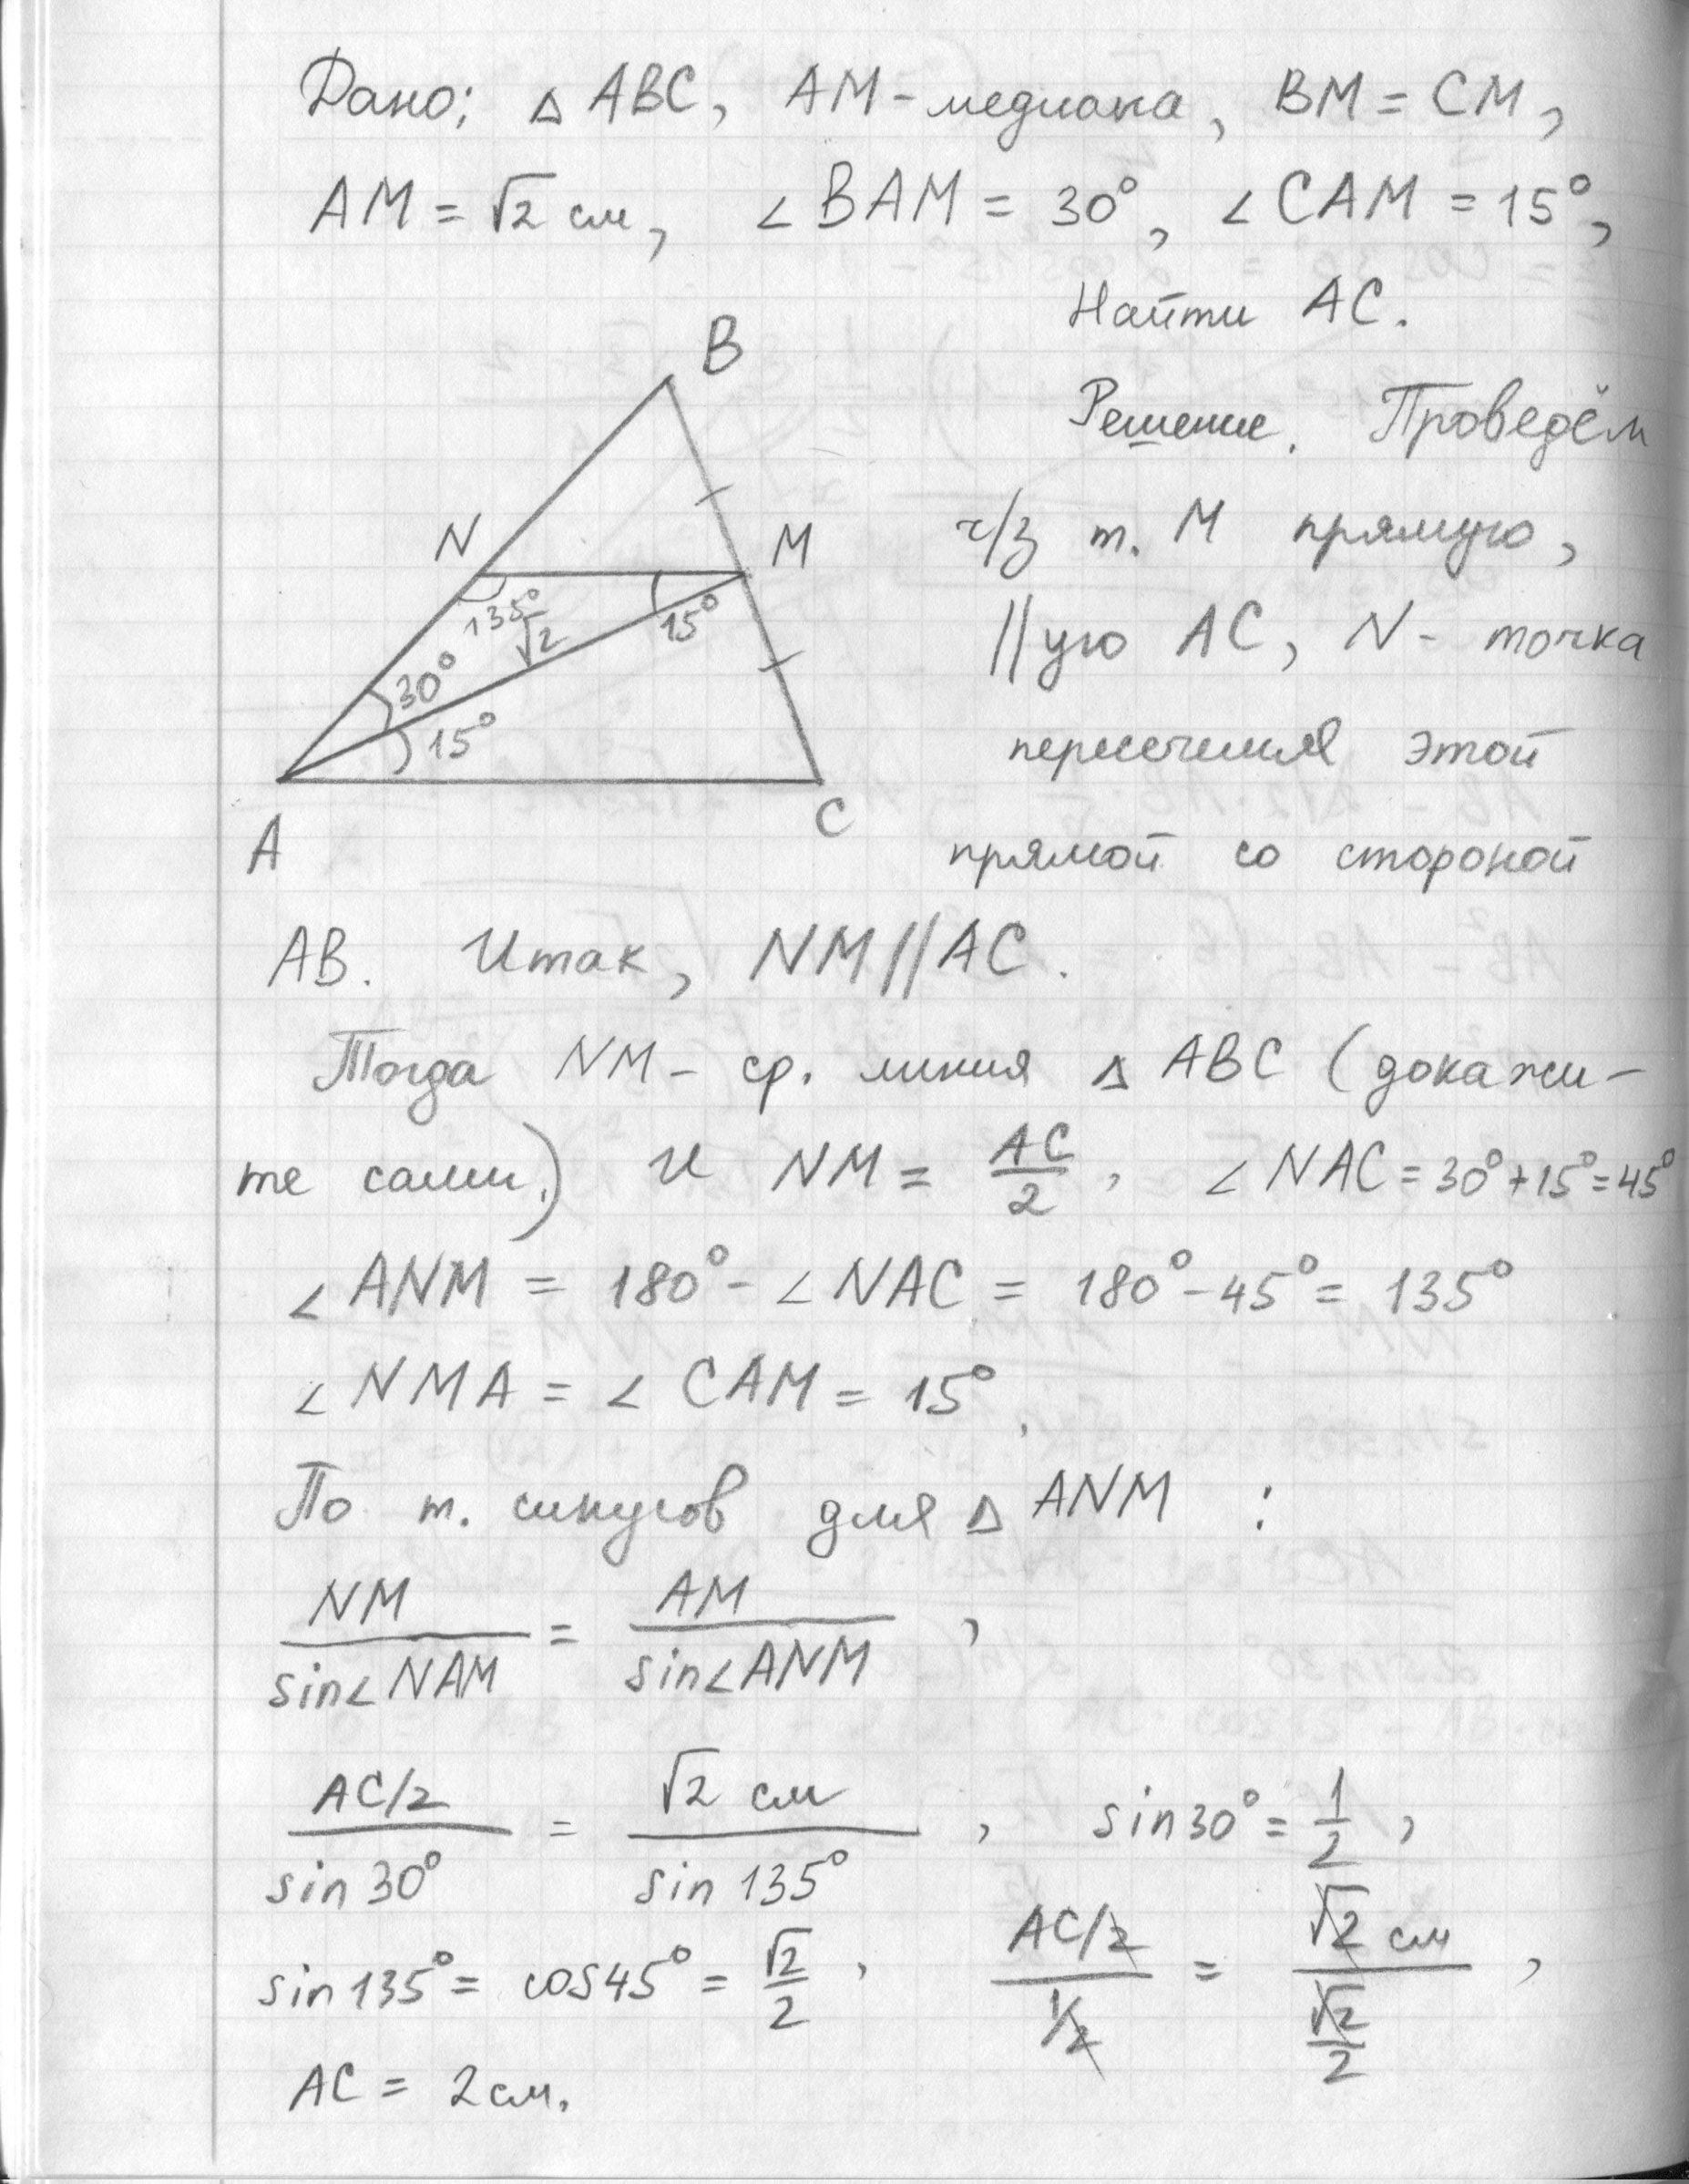 Дано: △ ABC, AM - медиана, BM = CM,
AM = √2 см, ∠BAM = 30°, ∠CAM = 15°,
Найти AC.
B
Решение. Проведём
N
M
ч/з т. M прямую,
135°
15°
√2
||ую AC, N - точка
30°
15°
пересечения этой
A
C
прямой со стороной
AB. Итак, NM||AC.
Тогда NM - ср. линия △ ABC (докажи-
те сами.) и NM = AC/2, ∠NAC = 30°+15°=45°
∠ANM = 180° - ∠NAC = 180° - 45° = 135°
∠NMA = ∠CAM = 15°.
По т. синусов для △ ANM :
NM/sin∠NAM = AM/sin∠ANM ,
(AC/2)/sin 30° = √2 см/sin 135° , sin30° = 1/2 ,
sin135° = cos45° = √2/2 , (AC/2)/(1/2) = √2 см/(√2/2) ,
AC = 2см.